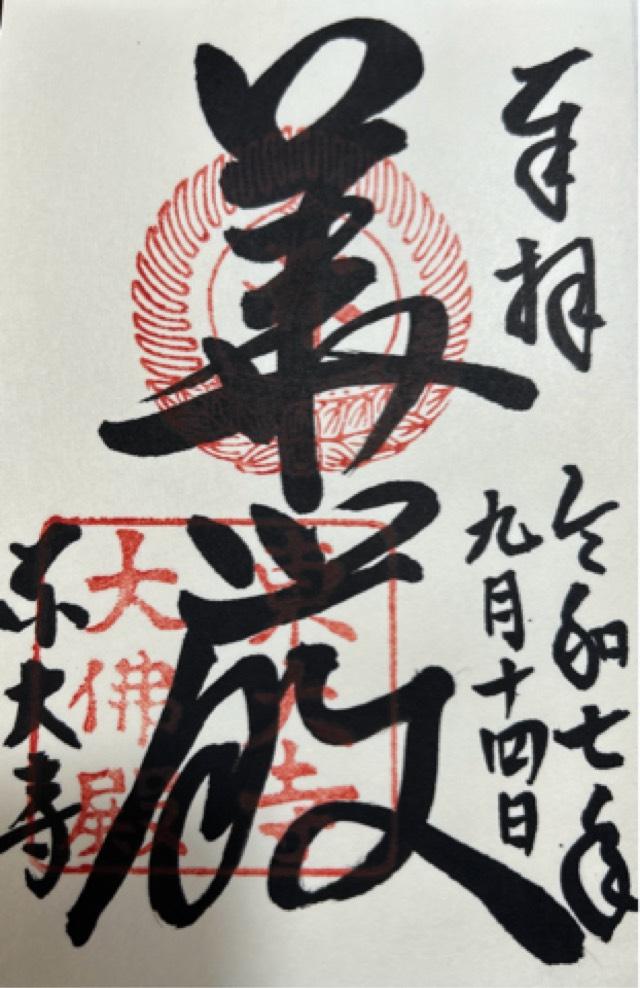 奉拝
令和七年
九月十四日
華厳
東大寺
大佛殿
東大寺